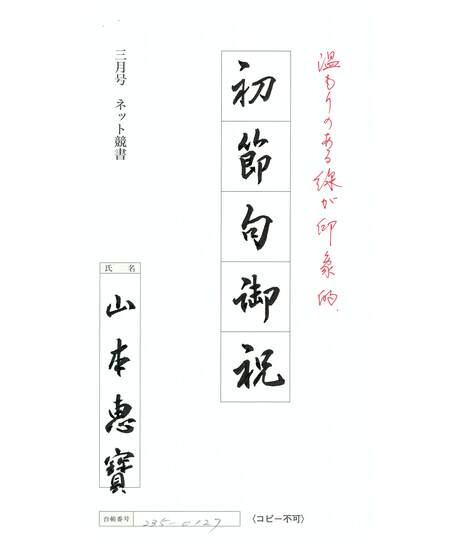 温もりのある線が印象的.
初節句御祝
三月号　ネット競書
氏名
山本惠寶
台帳番号 235-0127
〈コピー不可〉